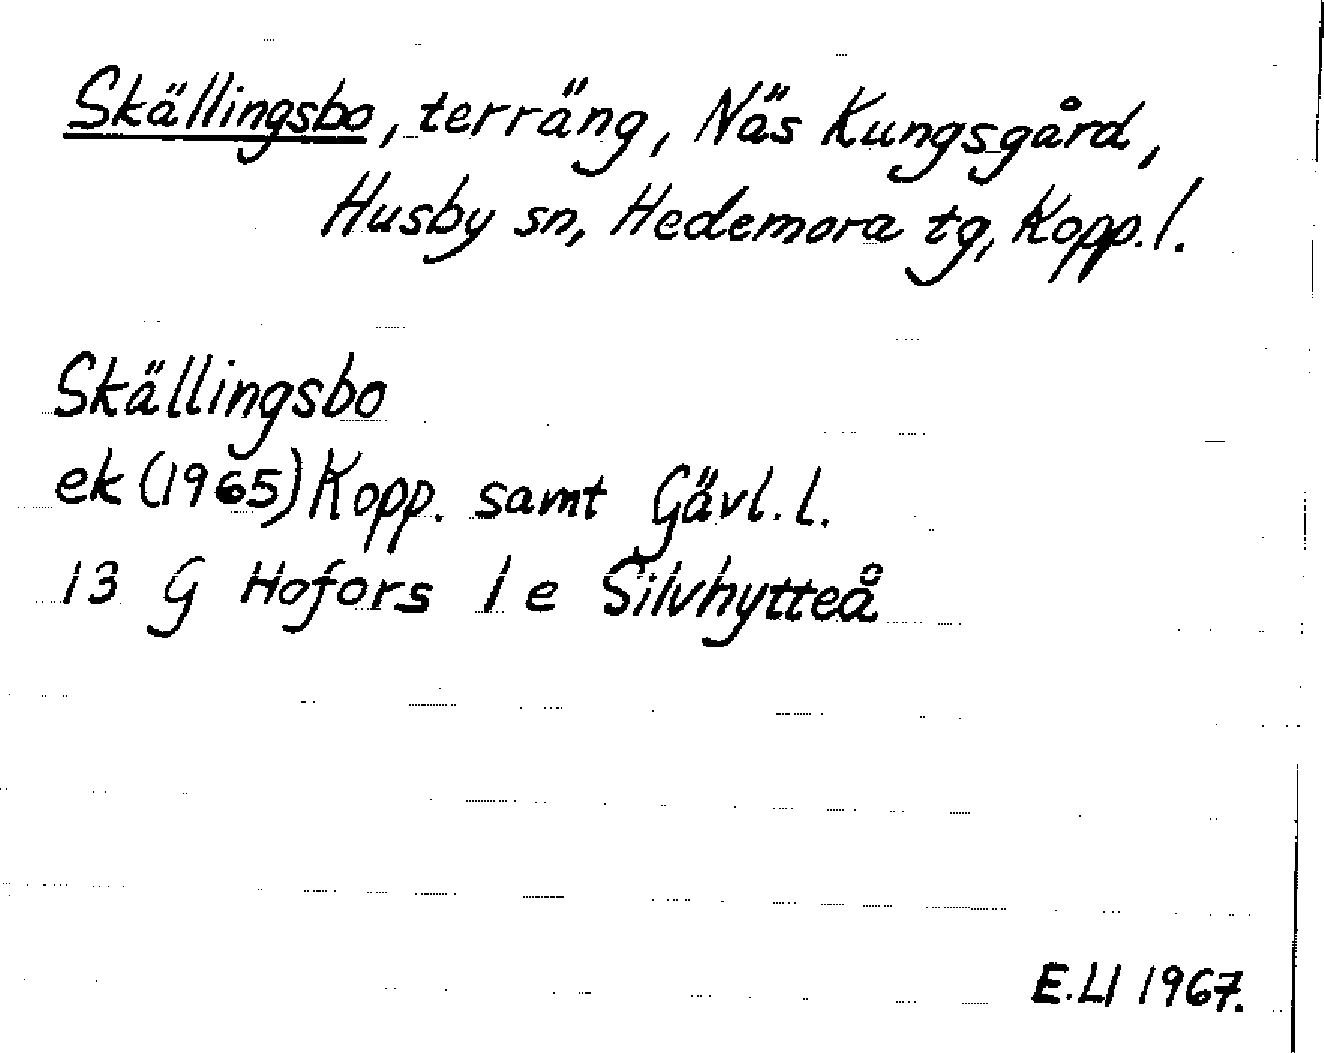 Skällingsbo, terräng, Näs Kungsgård,
Husby sn, Hedemora tg, Kopp. l.
Skällingsbo
ek (1965) Kopp. samt Gävl. l.
13 G Hofors 1 e Silvhytteå
E.Ll 1967.